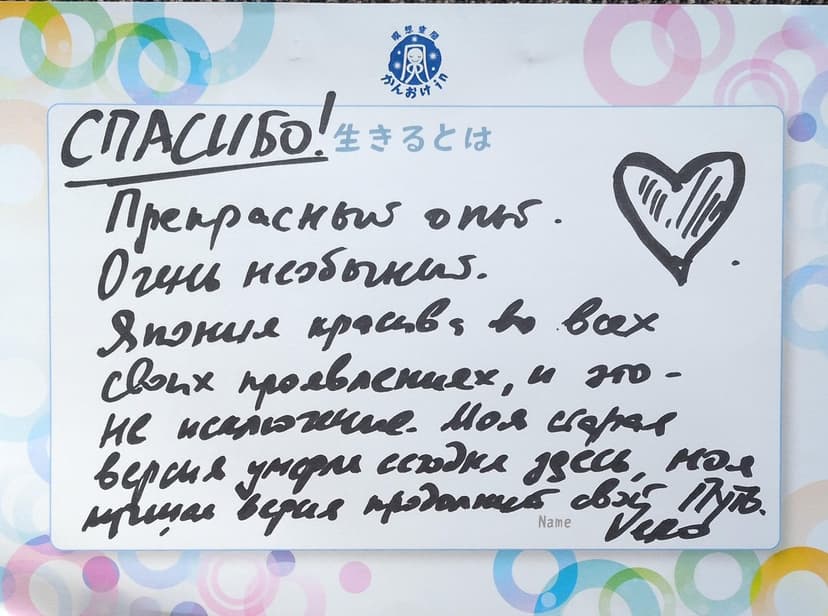 瞑想空間
かんおけin
СПАСИБО! 生きるとは
Прекрасный опыт.
Очень необычный.
Япония красива во всех
своих проявлениях, и это -
не исключение. Моя старая
версия умерла сегодня здесь, моя
лучшая версия продолжит свой Путь.
Name
Vera